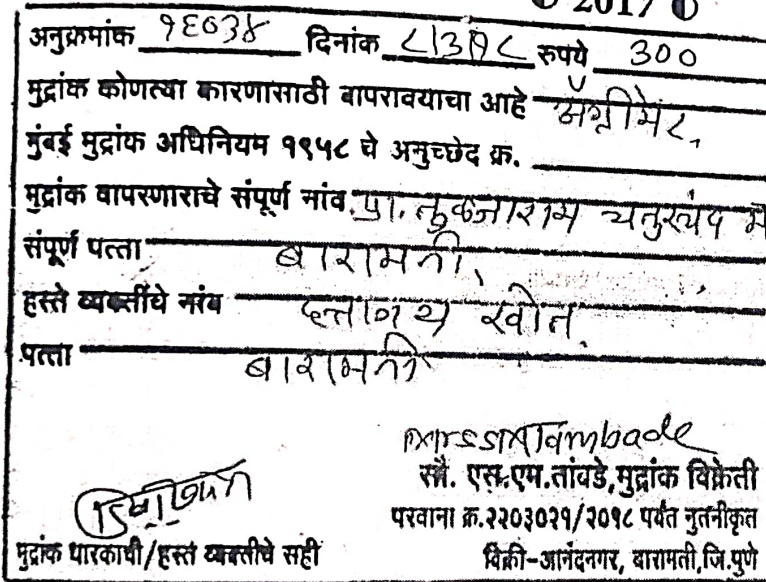 2017
अनुक्रमांक १६०३४ दिनांक ८/३/१८ रुपये 300
मुद्रांक कोणत्या कारणासाठी वापरावयाचा आहे अॅग्रीमेंट,
मुंबई मुद्रांक अधिनियम १९५८ चे अनुच्छेद क्र.
मुद्रांक वापरणाराचे संपूर्ण नांव प्रा. तुळजाराम चतुरचंद
संपूर्ण पत्ता बारामती,
हस्ते व्यक्तीचे नांव दत्तात्रय खोत
पत्ता बारामती
Tambade
सौ. एस.एम.तांवडे,मुद्रांक विक्रेती
परवाना क्र.२२०३०२१/२०१८ पर्यंत नुतनीकृत
मुद्रांक धारकाची/हस्त व्यक्तीचे सही विक्री-आनंदनगर, बारामती,जि.पुणे